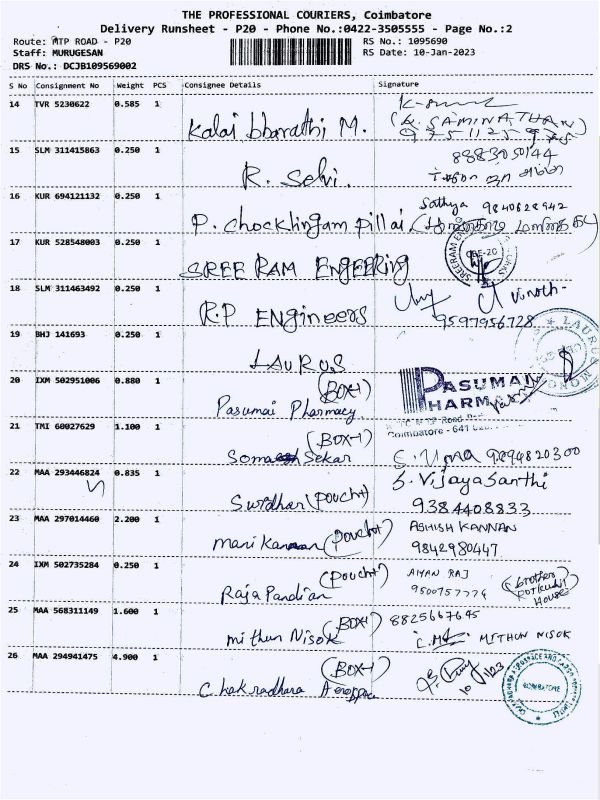 THE PROFESSIONAL COURIERS, Coimbatore
Delivery Runsheet - P20 - Phone No.:0422-3505555 - Page No.:2
Route: MTP ROAD - P20
Staff: MURUGESAN
DRS No.: DCJB109569002
RS No.: 1095690
RS Date: 10-Jan-2023
S No Consignment No Weight PCS Consignee Details Signature
14 TVR 5230622 0.585 1 Kalai bharathi M.
(K. SAMINATHAN)
15 SLM 311415863 0.250 1 R. Selvi. 8883050144
16 KUR 694121132 0.250 1 P. chocklingam pillai Sathya 9840628942
17 KUR 528548003 0.250 1 SREE RAM ENgEERING
18 SLM 311463492 0.250 1 R.P ENgineers Vinoth
9597956728
19 BHJ 141693 0.250 1 LAURUS
20 IXM 502951006 0.880 1 Pasumai Pharmacy (BOX-1) PASUMAI PHARMA
Coimbatore - 641
21 TMI 60027629 1.100 1 Soma Sekar (BOX-1) S. Uma 9894820300
22 MAA 293446824 0.835 1 (Pouch1) S. Vijaya Santhi
9384408833
23 MAA 297014460 2.200 1 Mani Kannan (pouch1) ASHISH KANNAN
9842980447
24 IXM 502735284 0.250 1 Raja Pandian (Pouch1) AMAN RAJ
(brother House)
25 MAA 568311149 1.600 1 Mithun Nisok (BOX-1) 8825667645
MITHUN NISOK
26 MAA 294941475 4.900 1 Chakradhara (BOX-1)
COIMBATORE